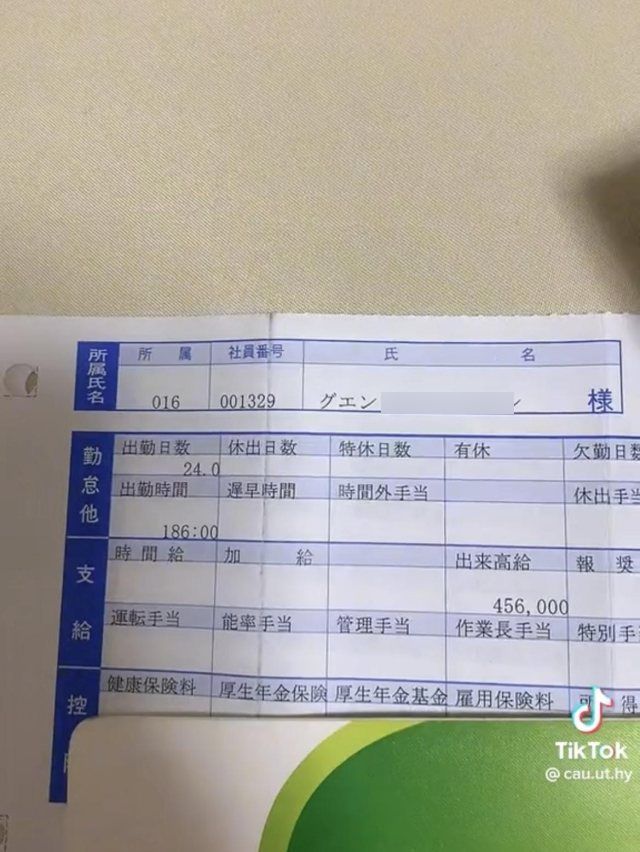 所属氏名
所 属 社員番号 氏 名
016 001329 グエン 様
勤怠他
出勤日数 休出日数 特休日数 有休 欠勤日数
24.0
出勤時間 遅早時間 時間外手当 休出手当
186:00
支給
時間給 加 給 出来高給 報 奨
456,000
運転手当 能率手当 管理手当 作業長手当 特別手
控
健康保険料 厚生年金保険 厚生年金基金 雇用保険料 得
TikTok
@ cau.ut.hy